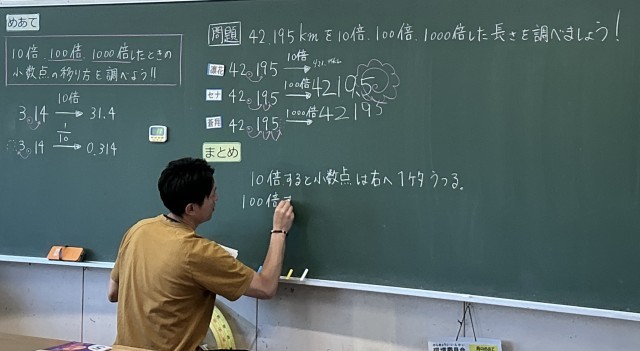 めあて
10倍、100倍、1000倍したときの
小数点の移り方を調べよう!!
10倍
3.14 → 31.4
1/10
3.14 → 0.314
問題 42.195kmを10倍、100倍、1000倍した長さを調べましょう!
42.195 10倍 → 421.95km
セナ 42.195 100倍 → 4219.5
42.195 1000倍 → 42195
まとめ
10倍すると小数点は右へ1ケタうつる。
100倍す